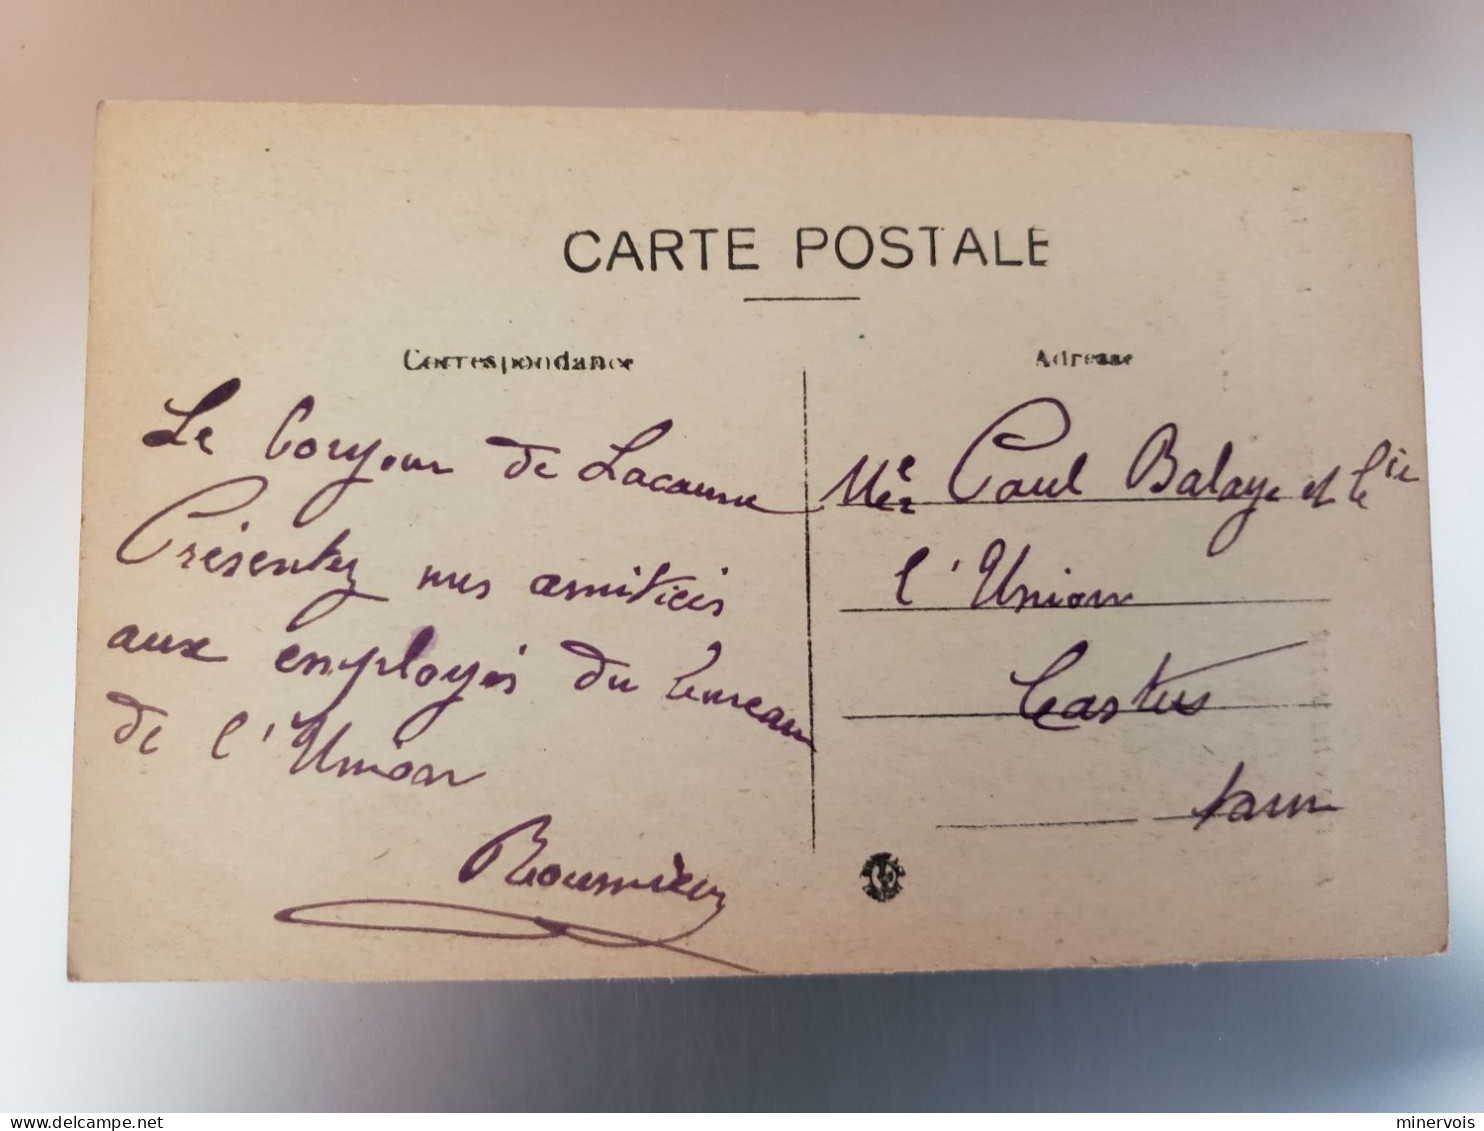 CARTE POSTALE
Correspondance
Le bonjour de Lacaune
Présentez mes amitiés
aux employés du bureau
de l'Union
Adresse
Paul Balaye et Cie
l'Union
Castres
Tarn
minervois